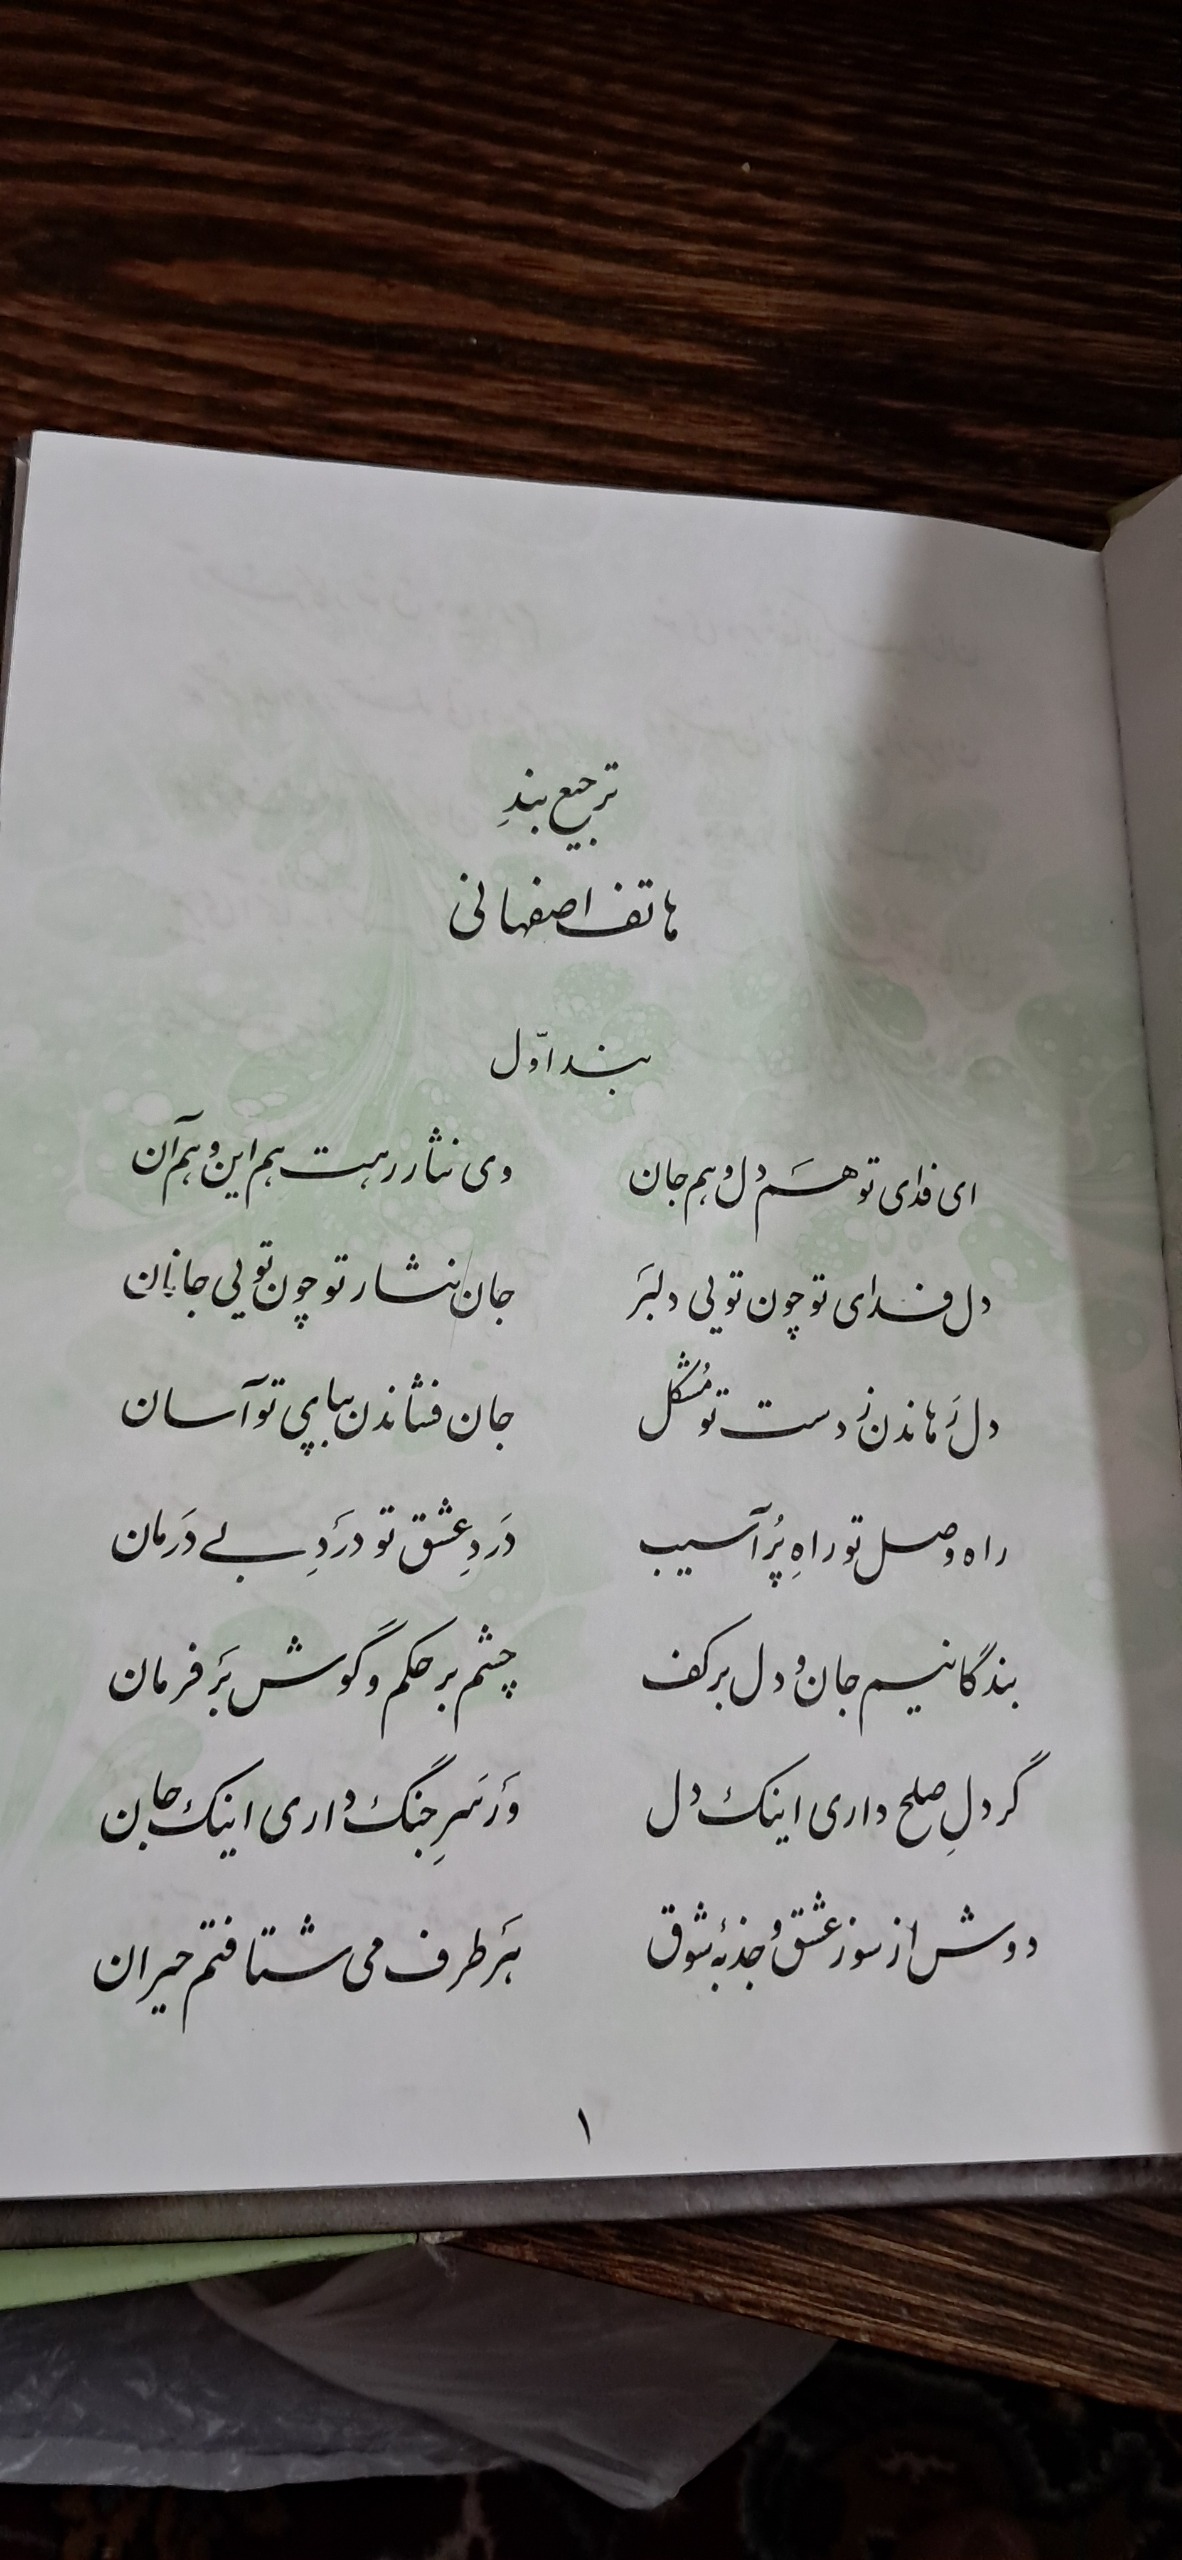 ترجیع بندِ
هاتف اصفهانی
بند اوّل
ای فدای تو هَم دل و هم جان وی نثار رهت هم این و هم آن
دل فدای تو چون تویی دلبَر جان نثار تو چون تویی جانان
دل رَهاندن ز دست تو مُشکل جان فشاندن بپای تو آسان
راه وصل تو راهِ پُر آسیب دَردِ عِشق تو دَردِ بی دَرمان
بندگانیم جان و دل بر کف چشم بر حکم و گوش بَر فرمان
گر دلِ صلح داری اینک دل وَر سَرِ جنگ داری اینک جان
دوش از سوز عشق و جذبهٔ شوق هَر طرف می شتافتم حیران
۱